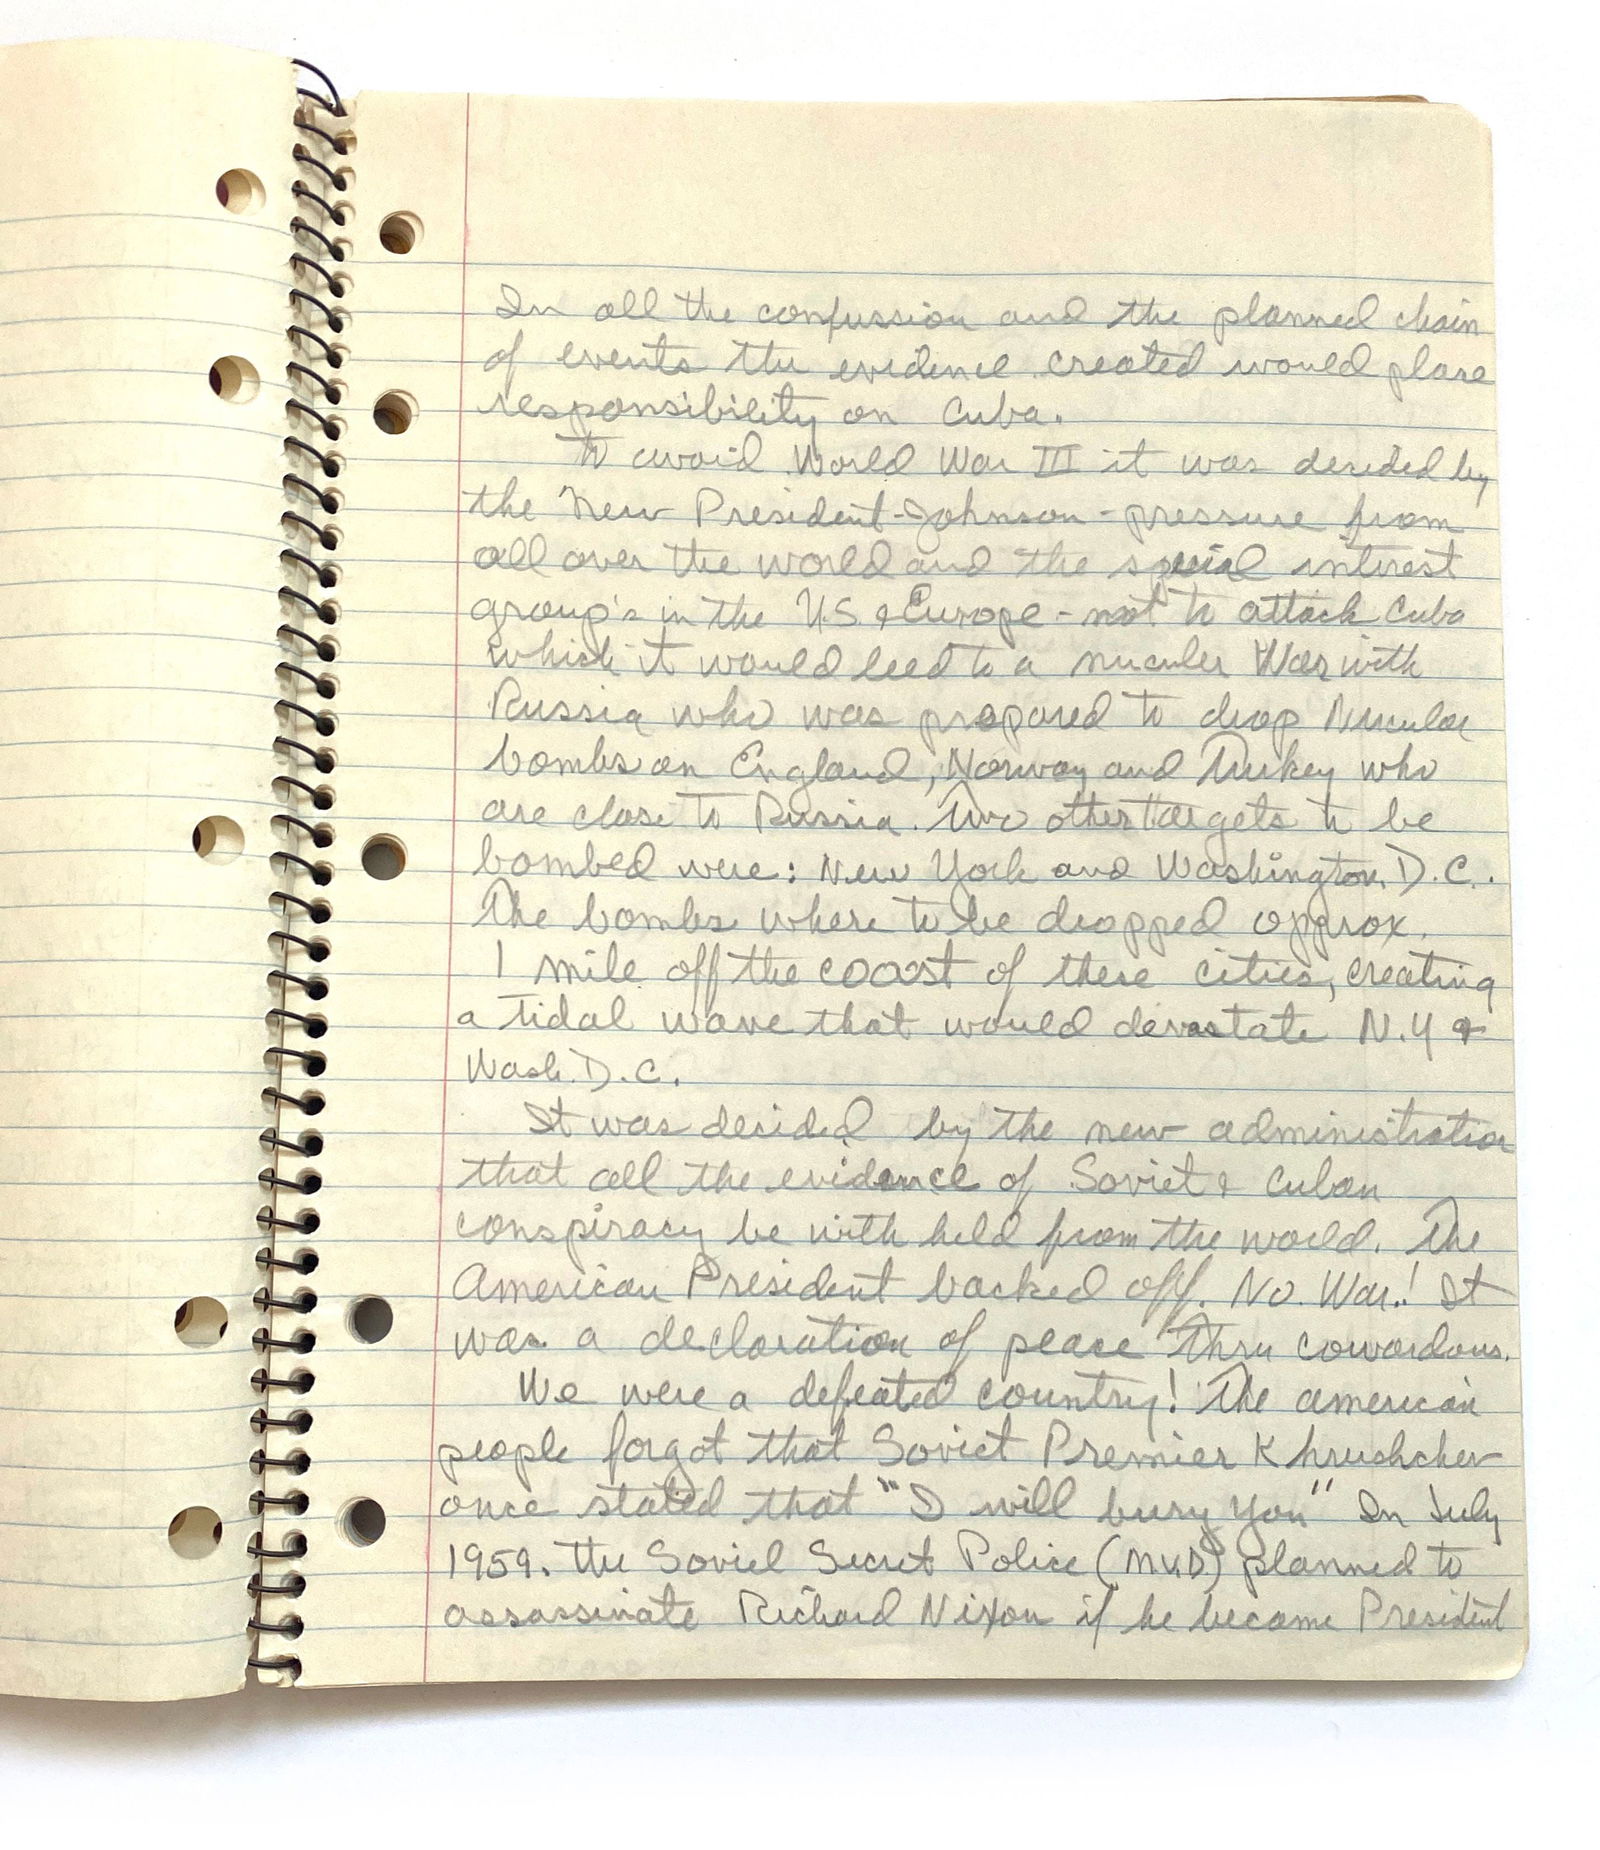 In all the confussion and the planned chain
of events the evidence created would place
responsibility on Cuba.
To avoid World War III it was decided by
the New President-Johnson-pressure from
all over the world and the special interest
group's in the U.S. & Europe - not to attack Cuba
which it would leed to a nuculer War with
Russia who was prepared to drop Nucular
bombs on England, Norway and Turkey who
are close to Russia. Two other targets to be
bombed were: New York and Washington, D.C.
The bombs where to be dropped approx.
1 mile off the coast of these cities, creating
a tidal wave that would devastate N.Y &
Wash. D.C.
It was decided by the new administration
that all the evidence of Soviet & Cuban
conspiracy be with held from the world. The
American President backed off. No War! It
was a declaration of peace thru cowardous.
We were a defeated country! The american
people forgot that Soviet Premier Khrushchev
once stated that "I will bury you" In July
1959. The Soviet Secret Police (MVD) planned to
assassinate Richard Nixon if he became President